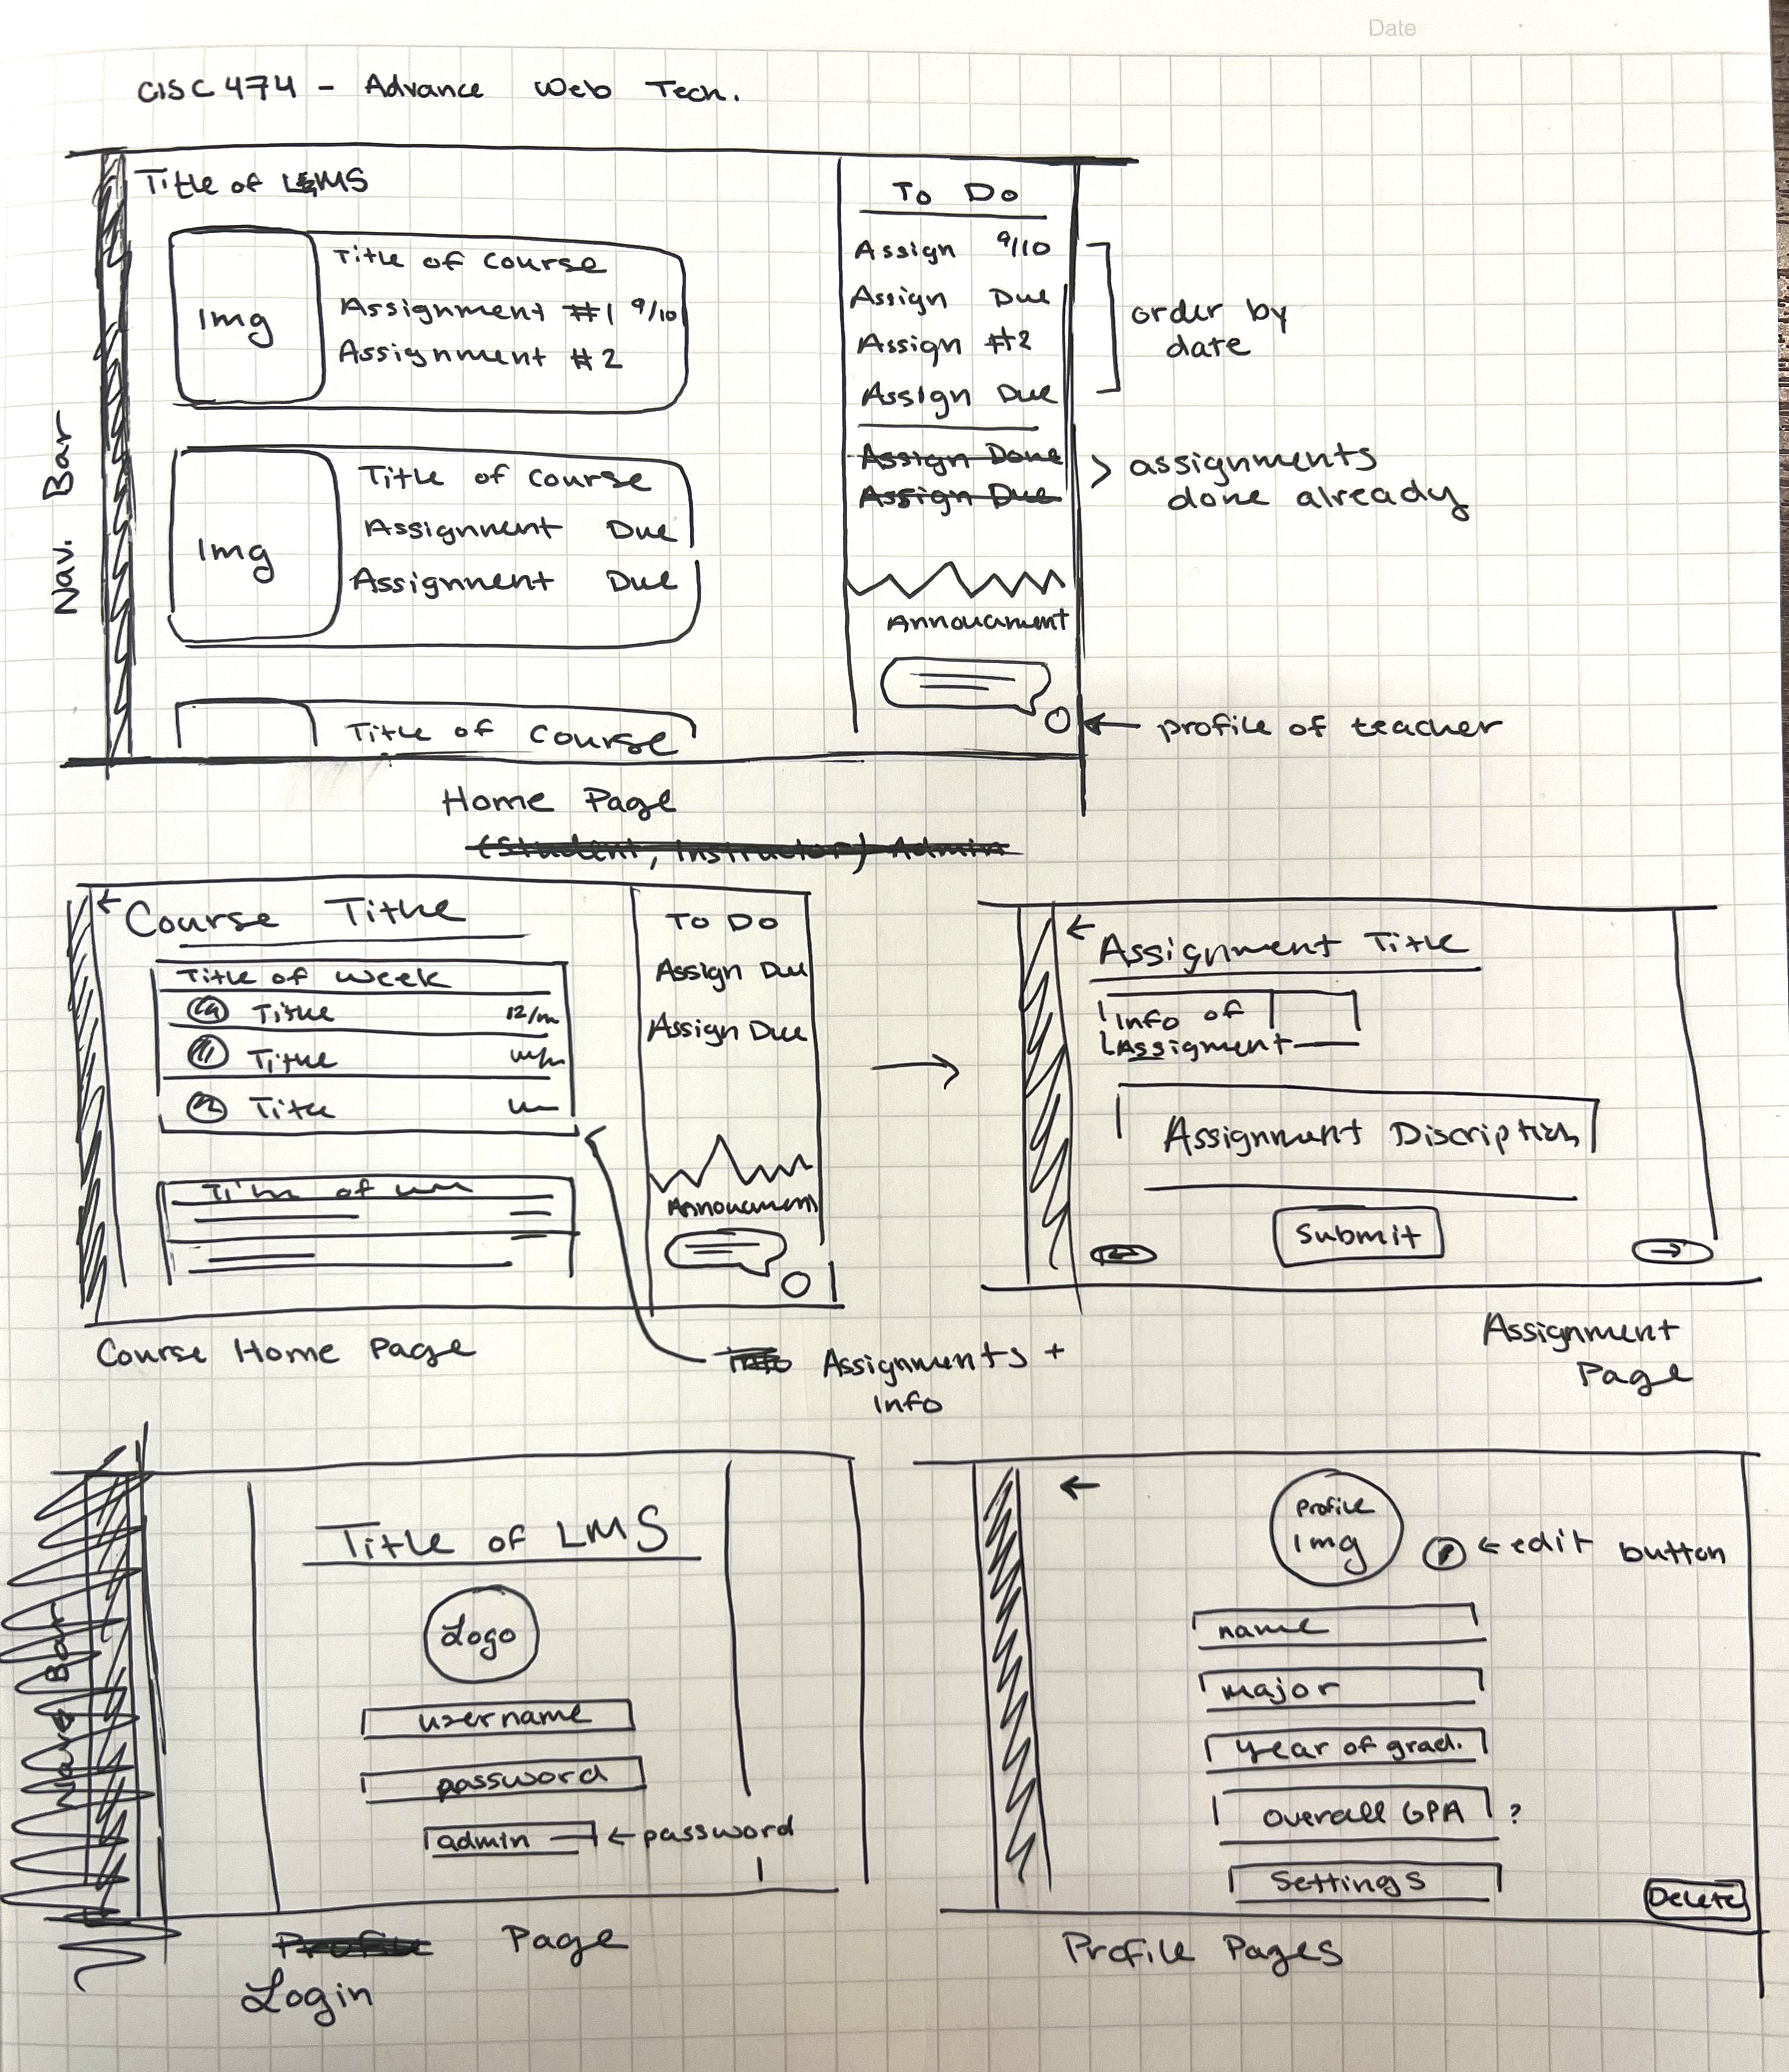 Date
CISC 474 - Advance Web Tech.
Title of LMS
Nav. Bar
Img
Title of Course
Assignment #1 9/10
Assignment #2
Img
Title of Course
Assignment Due
Assignment Due
Title of Course
To Do
Assign 9/10
Assign Due
Assign #2
Assign Due
Assign Done
Assign Due
order by
date
> assignments
done already
Annoucment
← profile of teacher
Home Page
(Student, Instructor) Admin
← Course Title
Title of week
Title 12/m
Title
Title
Title of
To Do
Assign Due
Assign Due
Annoucment
Course Home Page
Info Assignments +
Info
→
← Assignment Title
Info of
Assigment
Assignment Discription
Submit
←
→
Assignment
Page
Nav Bar
Title of LMS
Logo
username
password
admin ← password
Profile Page
Login
←
Profile
Img
← edit button
name
major
year of grad.
overall GPA ?
Settings
Delete
Profile Pages